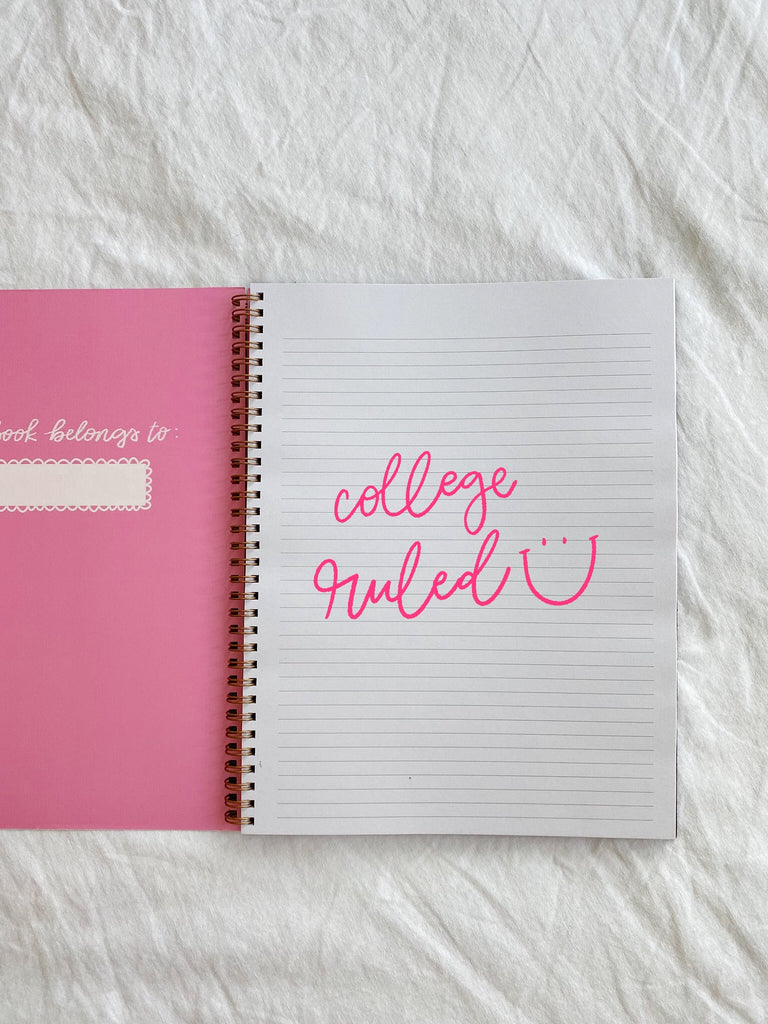 book belongs to:
college
ruled